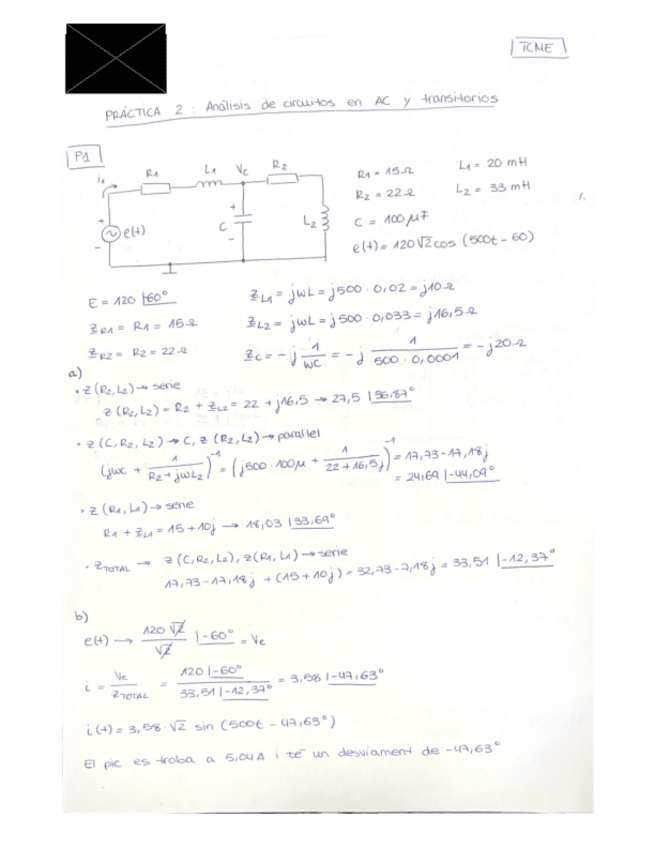 TCME
PRÁCTICA 2 : Análisis de circuitos en AC y transitorios
P1
i₁ R1 L1 Vc R2
+ e(t) - + C - L2
R1 = 15Ω L1 = 20 mH
R2 = 22Ω L2 = 33 mH
C = 100 μF
e(t) = 120√2 cos (500t - 60)
E = 120 |-60°
Z_R1 = R1 = 15Ω
Z_R2 = R2 = 22Ω
Z_L1 = jωL = j500 · 0,02 = j10Ω
Z_L2 = jωL = j500 · 0,033 = j16,5Ω
Z_C = -j 1/ωC = -j 1/(500 · 0,0001) = -j20Ω
a)
• Z (R2, L2) → serie
Z (R2, L2) = R2 + Z_L2 = 22 + j16,5 → 27,5 |36,87°
• Z (C, R2, L2) → C, Z (R2, L2) → parallel
(jωc + 1/(R2 + jωL2))⁻¹ = (j500 · 100μ + 1/(22 + 16,5j))⁻¹ = 17,73 - 17,18j
= 24,69 |-44,09°
• Z (R1, L1) → serie
R1 + Z_L1 = 15 + 10j → 18,03 |33,69°
• Z_TOTAL → Z (C, R2, L2), Z (R1, L1) → serie
17,73 - 17,18j + (15 + 10j) = 32,73 - 7,18j = 33,51 |-12,37°
b)
e(t) → 120 √2/√2 |-60° = Ve
i = Ve/Z_TOTAL = 120 |-60°/33,51 |-12,37° = 3,58 |-47,63°
i(t) = 3,58 · √2 sin (500t - 47,63°)
El pic es troba a 5,04 A i té un desviament de -47,63°